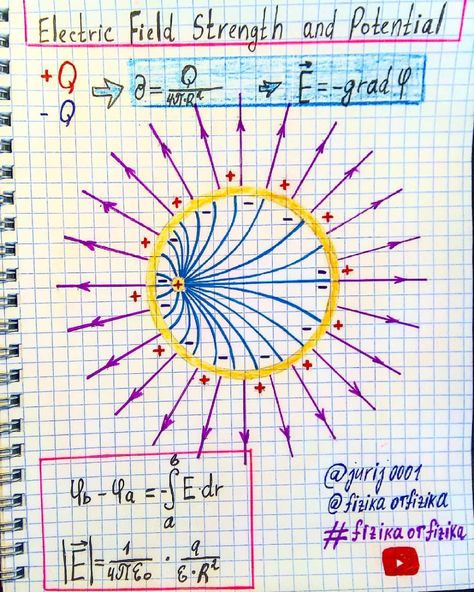 Electric Field Strength and Potential
+Q
-Q
⇒ ∂ = Q / 4π·R² ⇒ E⃗ = -grad φ
φb - φa = -∫ₐᵇ E·dr
|E⃗| = 1 / 4πε₀ · q / ε·R²
@jurij0001
@fizika от fizika
#fizika от fizika